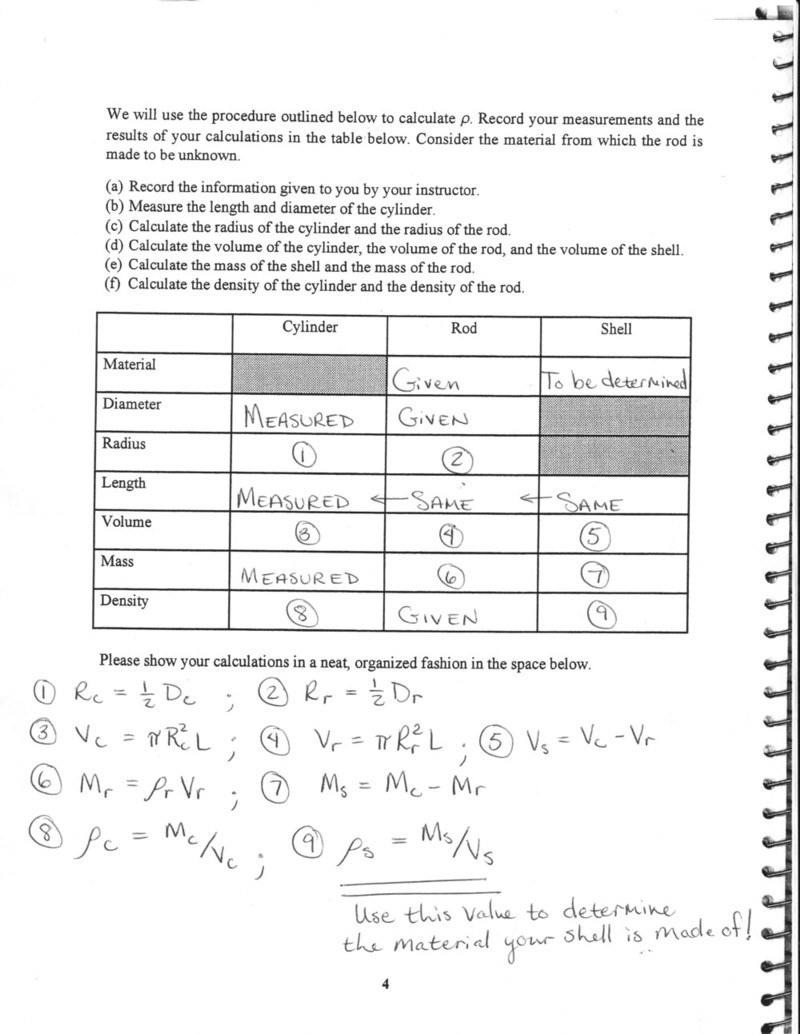 We will use the procedure outlined below to calculate ρ. Record your measurements and the
results of your calculations in the table below. Consider the material from which the rod is
made to be unknown.
(a) Record the information given to you by your instructor.
(b) Measure the length and diameter of the cylinder.
(c) Calculate the radius of the cylinder and the radius of the rod.
(d) Calculate the volume of the cylinder, the volume of the rod, and the volume of the shell.
(e) Calculate the mass of the shell and the mass of the rod.
(f) Calculate the density of the cylinder and the density of the rod.
Cylinder Rod Shell
Material Given To be determined
Diameter MEASURED GIVEN
Radius ① ②
Length MEASURED ← SAME ← SAME
Volume ③ ④ ⑤
Mass MEASURED ⑥ ⑦
Density ⑧ GIVEN ⑨
Please show your calculations in a neat, organized fashion in the space below.
① Rc = 1/2 Dc ; ② Rr = 1/2 Dr
③ Vc = πRc²L ; ④ Vr = πRr²L ; ⑤ Vs = Vc - Vr
⑥ Mr = ρrVr ; ⑦ Ms = Mc - Mr
⑧ ρc = Mc/Vc ; ⑨ ρs = Ms/Vs
Use this value to determine
the material your shell is made of!
4